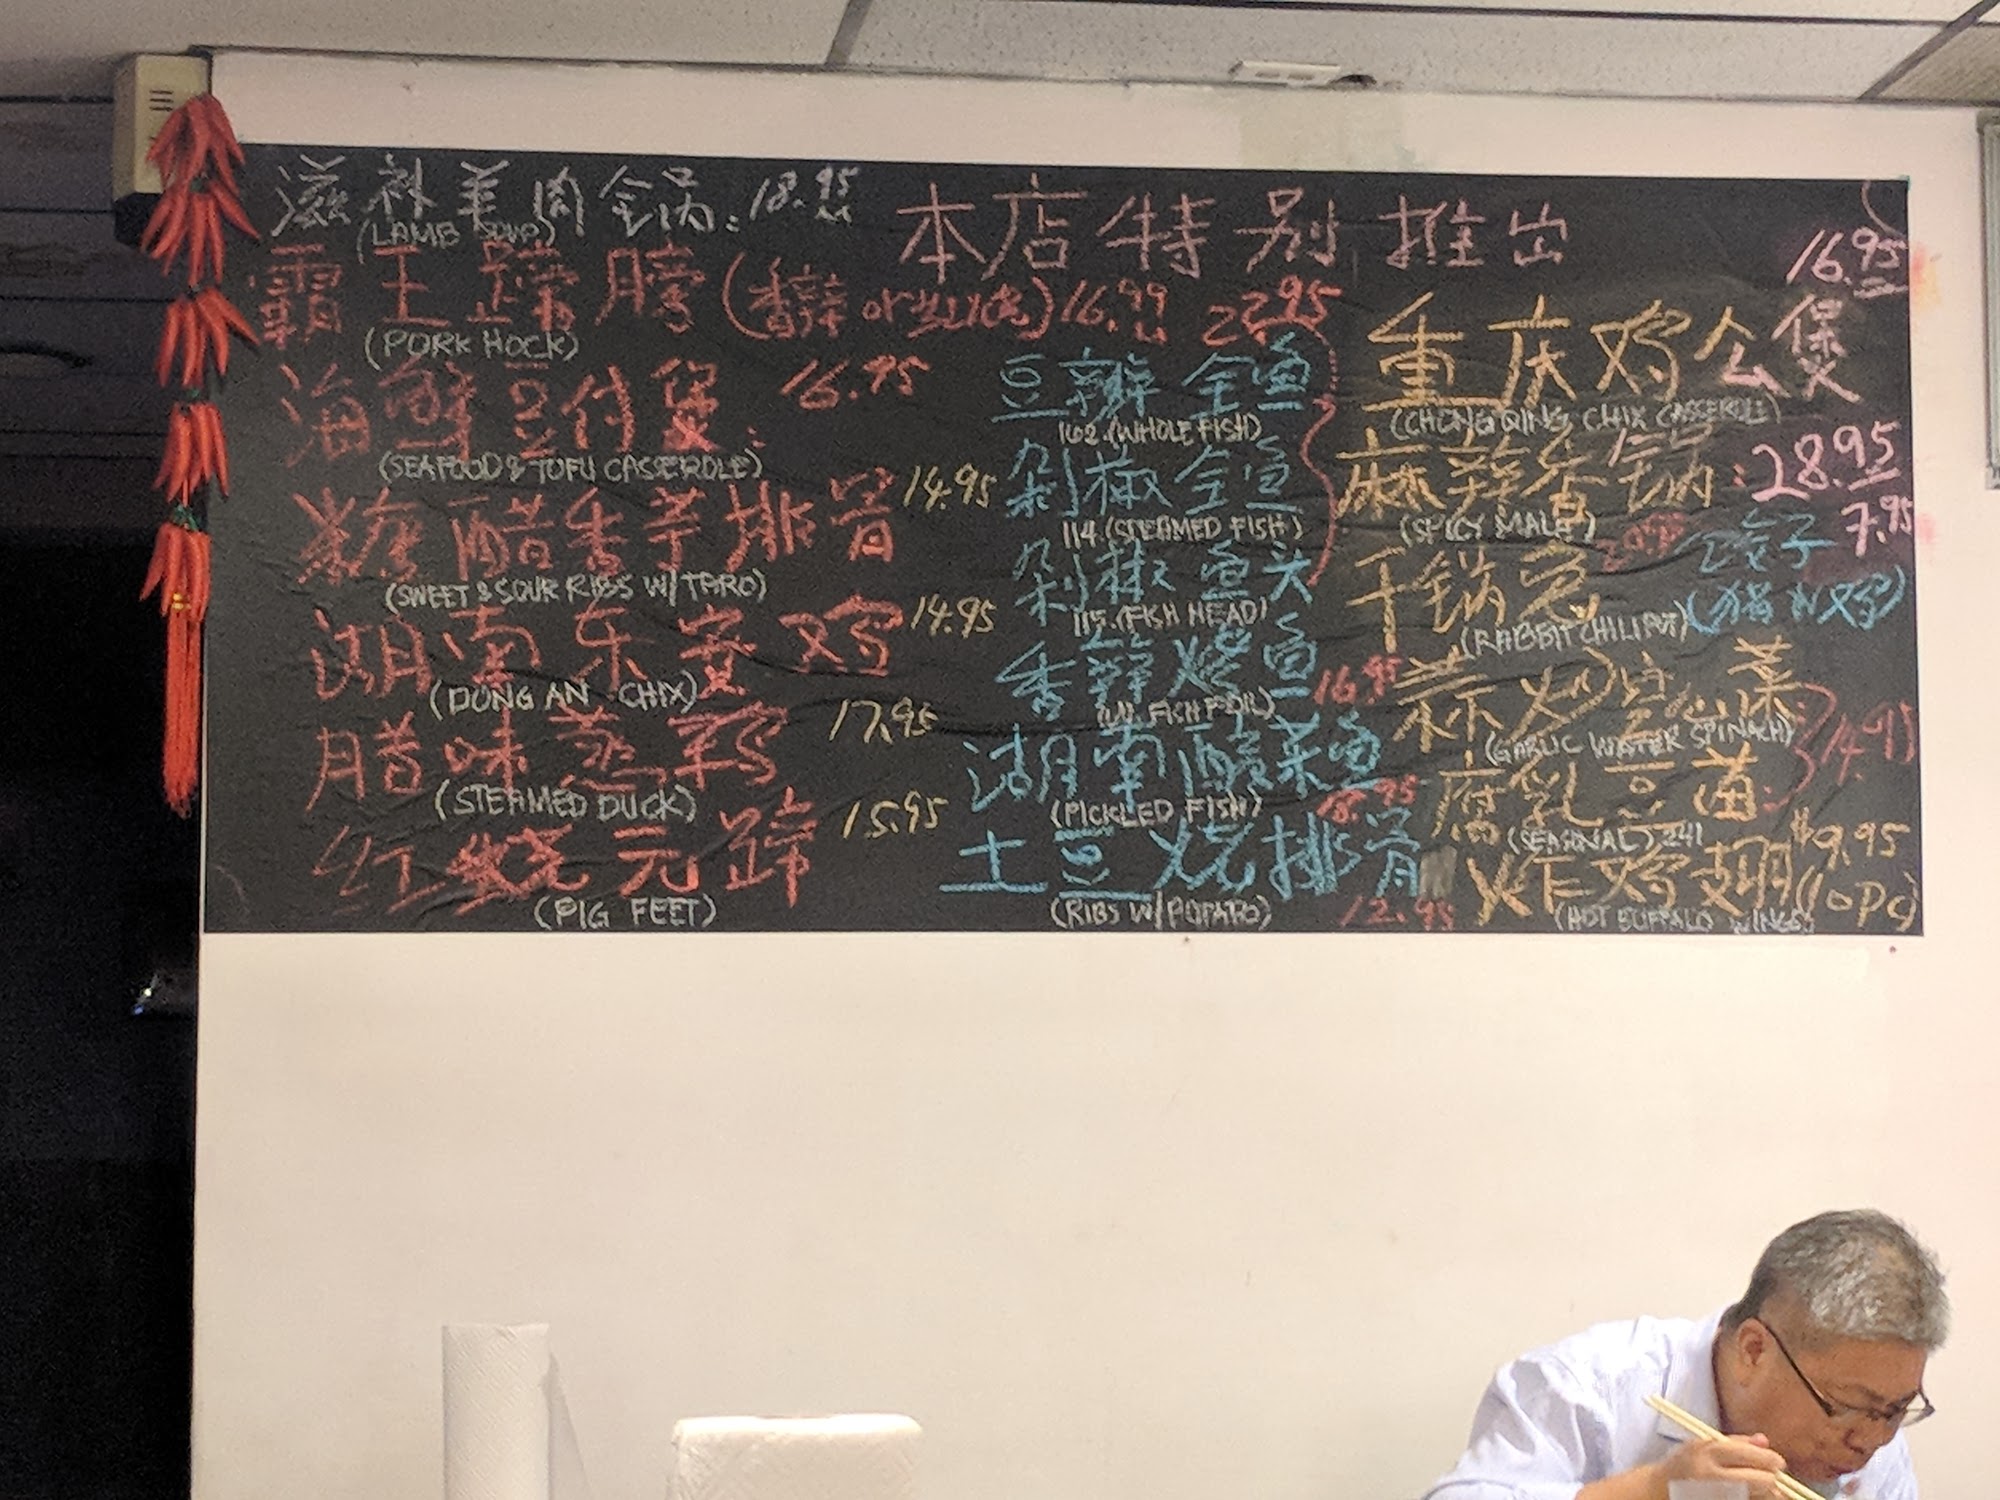 滋补羊肉锅: 18.95
(LAMB SOUP)
本店特别推出
霸王蹄膀(香辣or红烧)16.99
(PORK HOCK)
海鲜豆付煲: 16.95
(SEAFOOD & TOFU CASSEROLE)
糖醋香芋排骨 14.95
(SWEET & SOUR RIBS W/ TARO)
湖南东安鸡 14.95
(DONG AN CHIX)
腊味蒸鸭 17.95
(STEAMED DUCK)
红烧元蹄 15.95
(PIG FEET)
22.95
豆瓣全鱼
102.(WHOLE FISH)
剁椒全鱼
114.(STEAMED FISH)
剁椒鱼头
115.(FISH HEAD)
香辣烤鱼 16.95
湖南酸菜鱼
(PICKLED FISH) 18.95
土豆烧排骨
(RIBS W/ POTATO) 12.95
16.95
重庆鸡公煲
(CHONG QING CHIX CASSEROLE)
麻辣香锅: 28.95
(SPICY MALA)
干锅兔
(RABBIT CHILI POT)
饺子 7.95
蒜炒空心菜
(GARLIC WATER SPINACH)
14.95
腐乳豆苗:
(SEASONAL)
炸鸡翅 $9.95
(10PC)
(HOT BUFFALO WINGS)